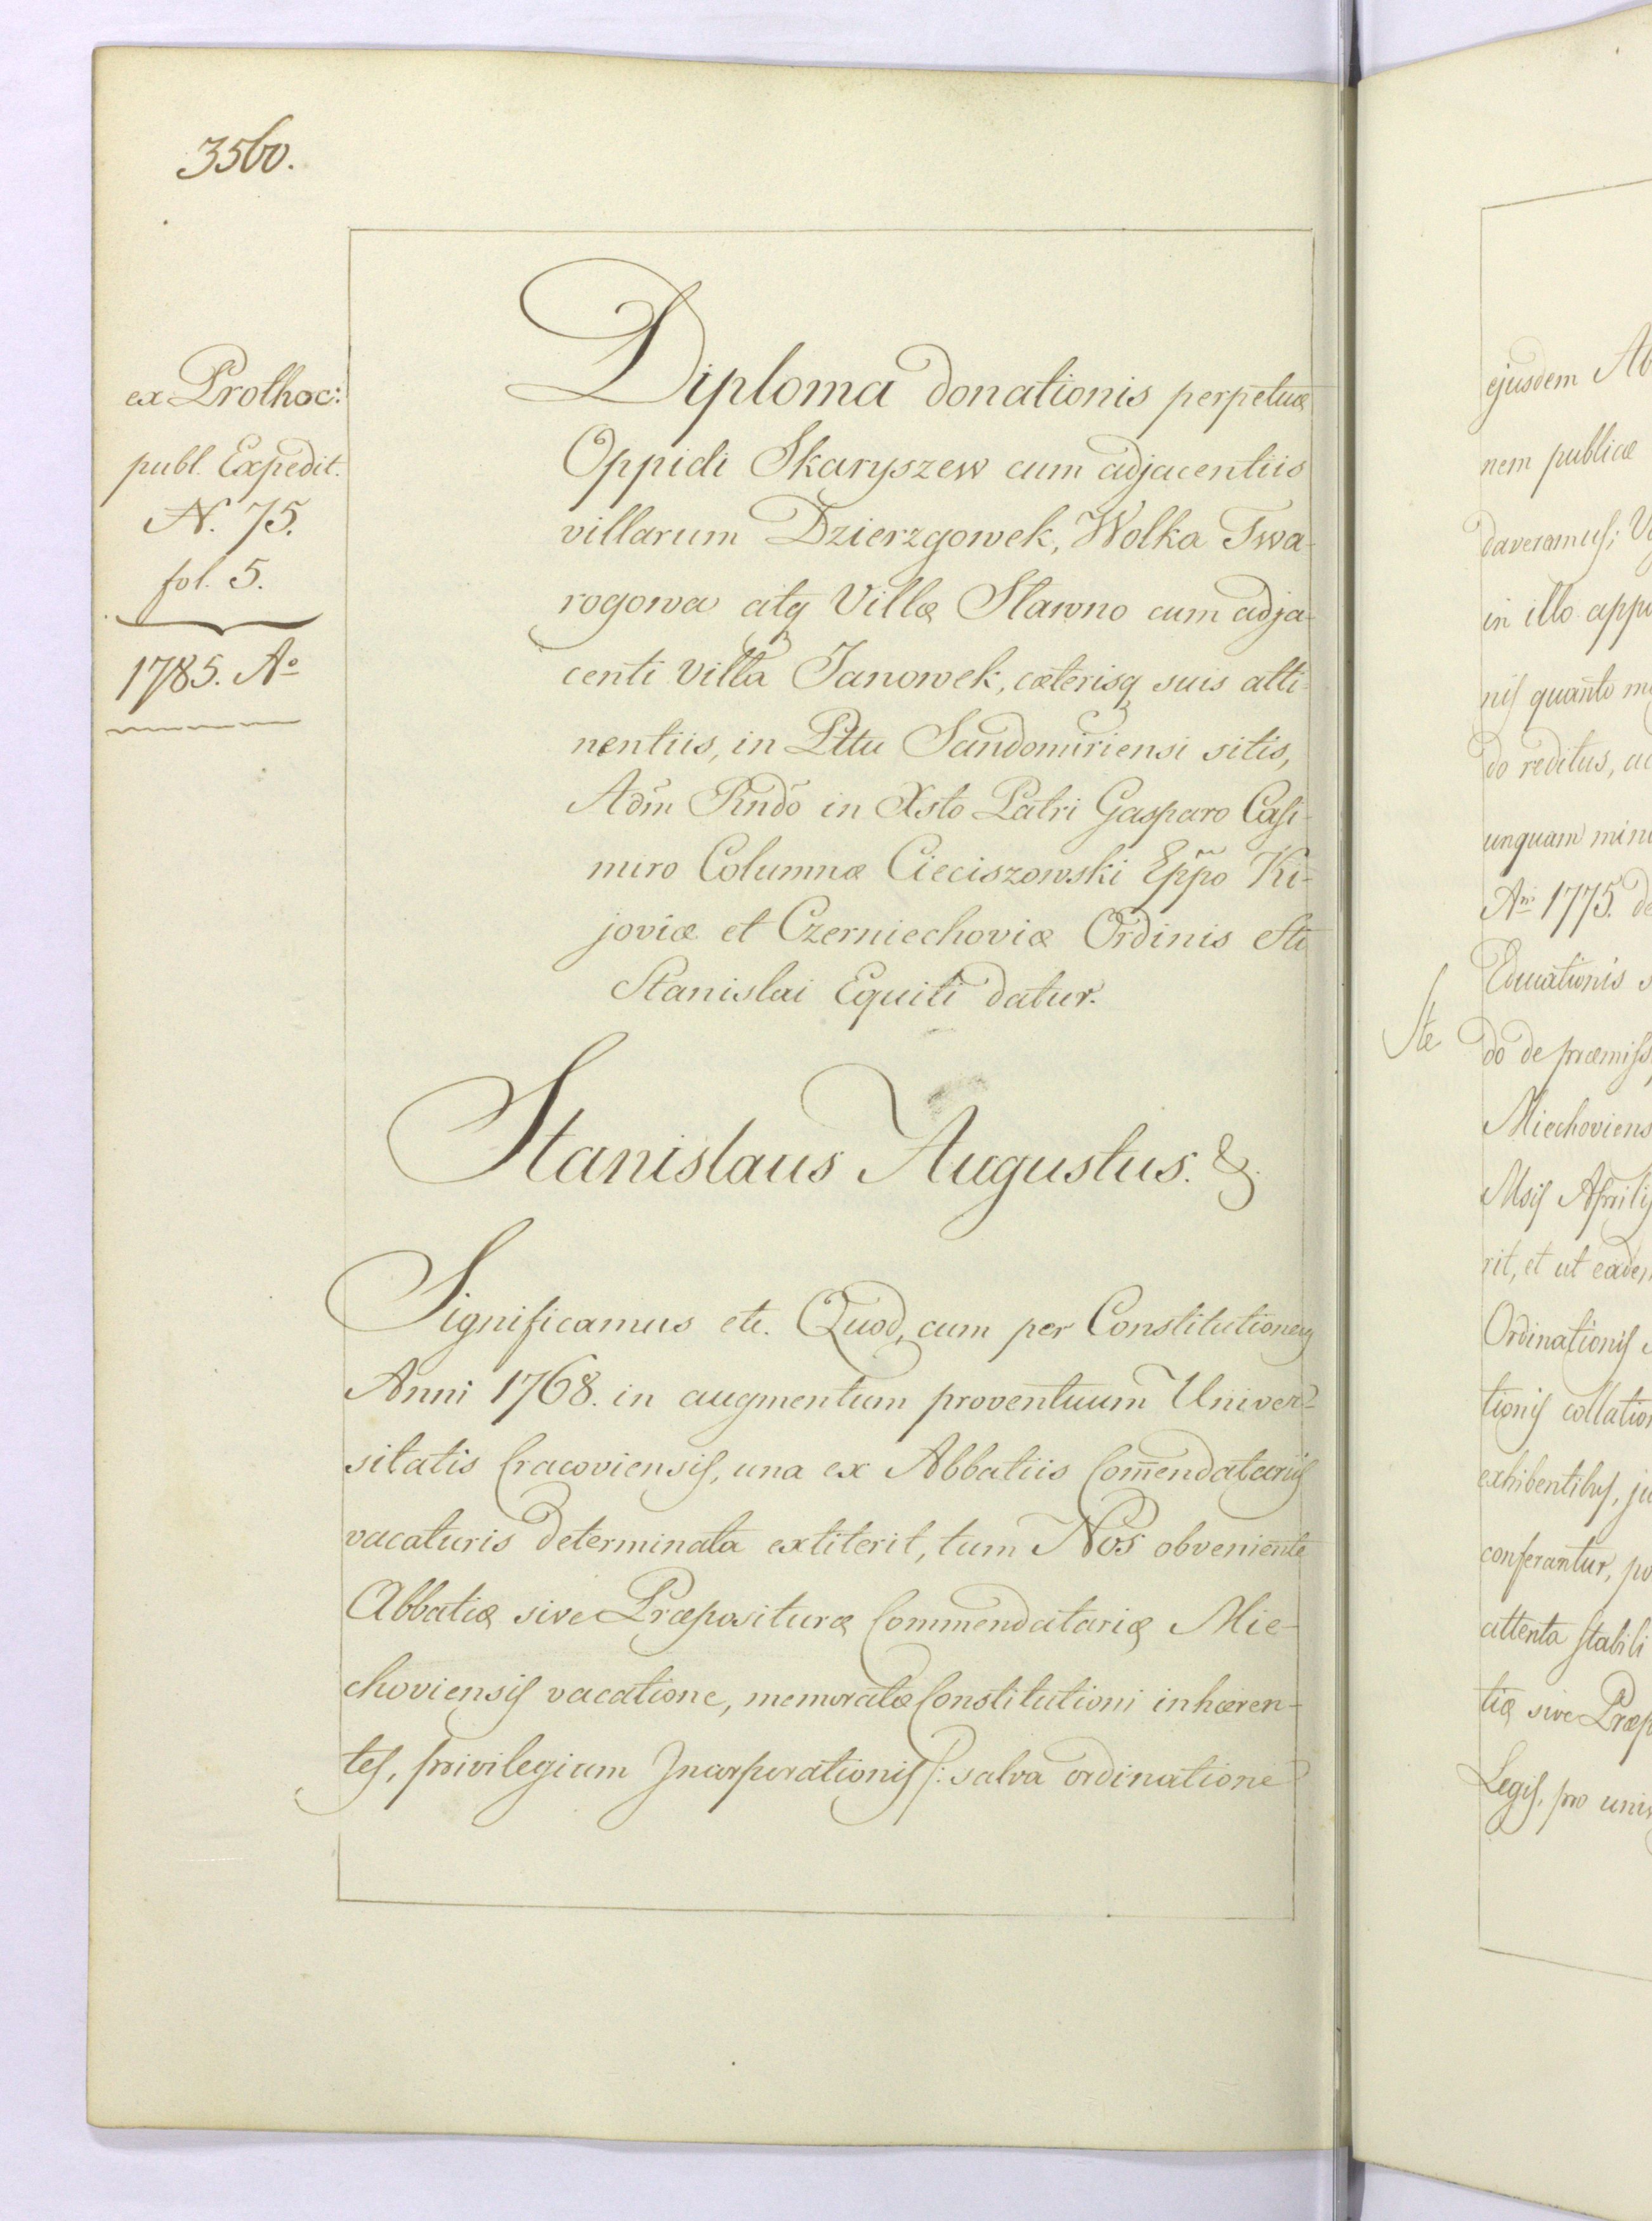 3560.
ex Prothoc:
publ. Expedit.
N. 75.
fol. 5.
1785. Aº
Diploma donationis perpetuæ
Oppidi Skaryszew cum adjacentiis
villarum Dzierzgowek, Wolka Twa-
rogowa atq Villæ Sławno cum adja-
centi villa Janowek, cæterisq suis atti-
nentiis, in Pttu Sandomiriensi sitis,
Adm̃ Rndo in Xsto Patri Gasparo Casi-
miro Columna Cieciszowski Eppo Ki-
joviæ et Czerniechoviæ Ordinis Sti
Stanislai Equiti datur.
Stanislaus Augustus. &.
Significamus etc. Quod, cum per Constitutionem
Anni 1768. in augmentum proventuum Univer-
sitatis Cracoviensis, una ex Abbatiis Com̃endatariis
vacaturis determinata extiterit, tum Nos obveniente
Abbatiæ sive Præpositura Commendatariæ Mie-
choviensis vacatione, memoratæ Constitutioni inhæren-
tes, privilegium Incorporationis /: salva ordinatione
ejusdem Ab
nem publicæ
daveramus;
in illo appo
nis quanto
do reditus, ac
unquam min
Ani 1775. de
Educationis s
Ste
do de præmiss
Miechoviens
Msis Aprilis
rit, et ut eadem
Ordinationis
tionis collation
exhibentibus, ju
conferantur, po
attenta stabili
tiæ sive Præp
Legis, pro univ